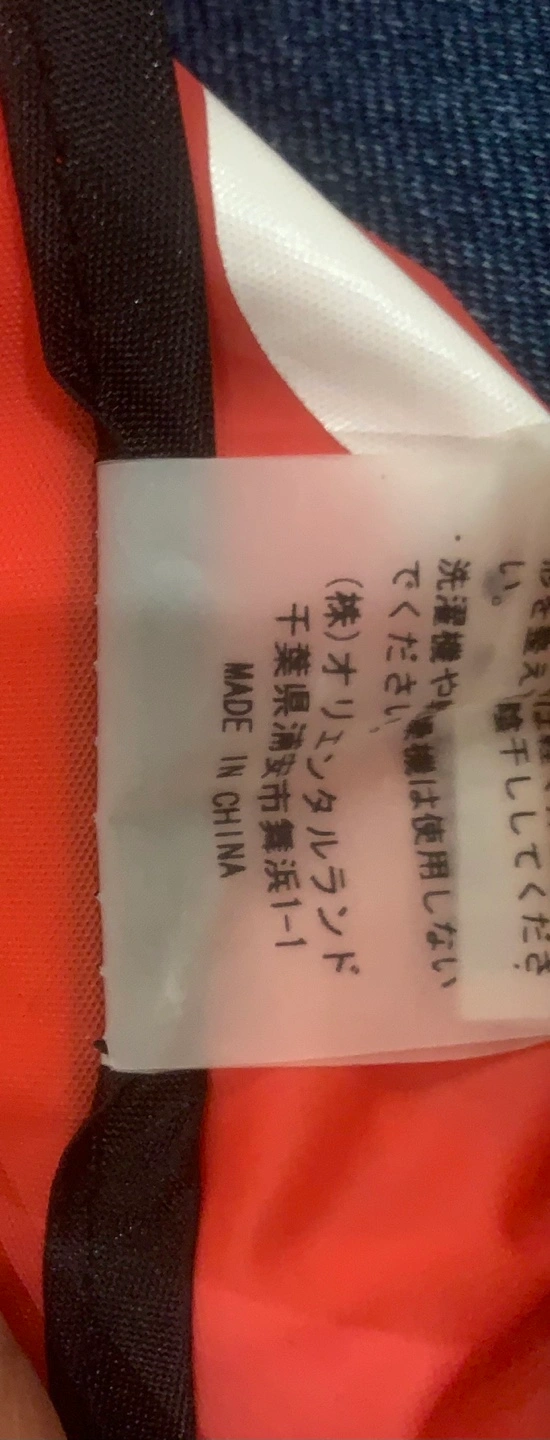 い。
・洗濯機や 機は使用しない
でください。
(株)オリエンタルランド
千葉県浦安市舞浜1-1
MADE IN CHINA